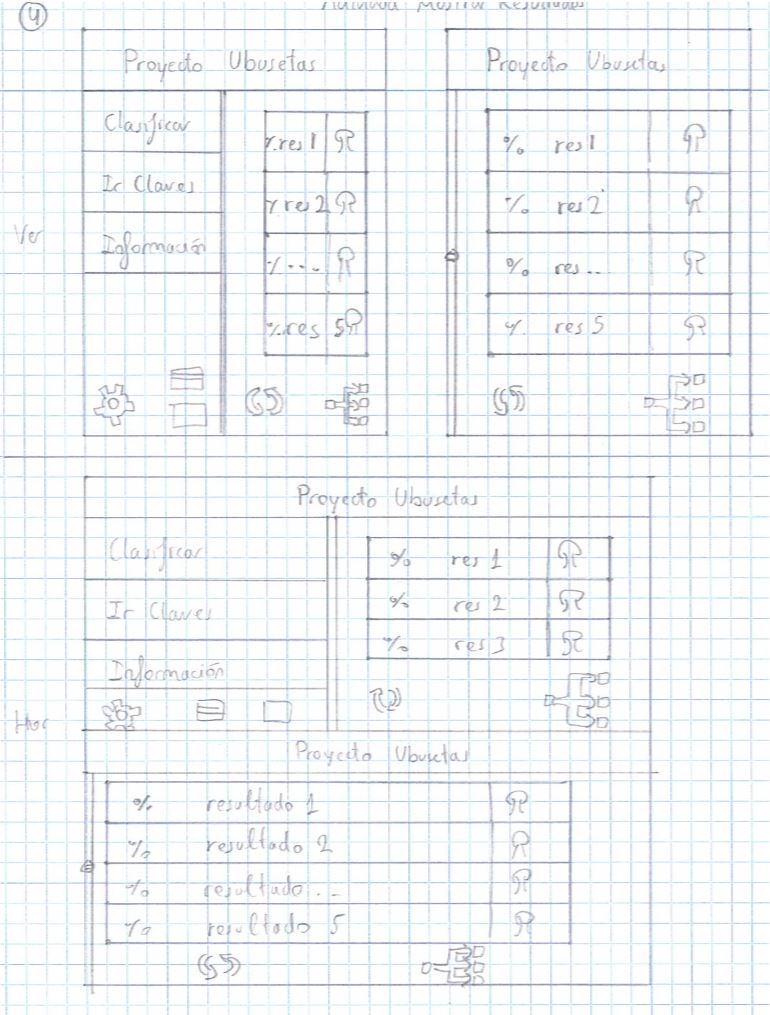 4
Mostrar Resultados
Proyecto Ubusetas
Clasificar
Ir Claves
Información
% res 1
% res 2
% ....
% res 5
Ver
Proyecto Ubusetas
% res 1
% res 2
% res ..
% res 5
Proyecto Ubusetas
Clasificar
Ir Claves
Información
% res 1
% res 2
% res 3
Hor
Proyecto Ubusetas
% resultado 1
% resultado 2
% resultado ..
% resultado 5